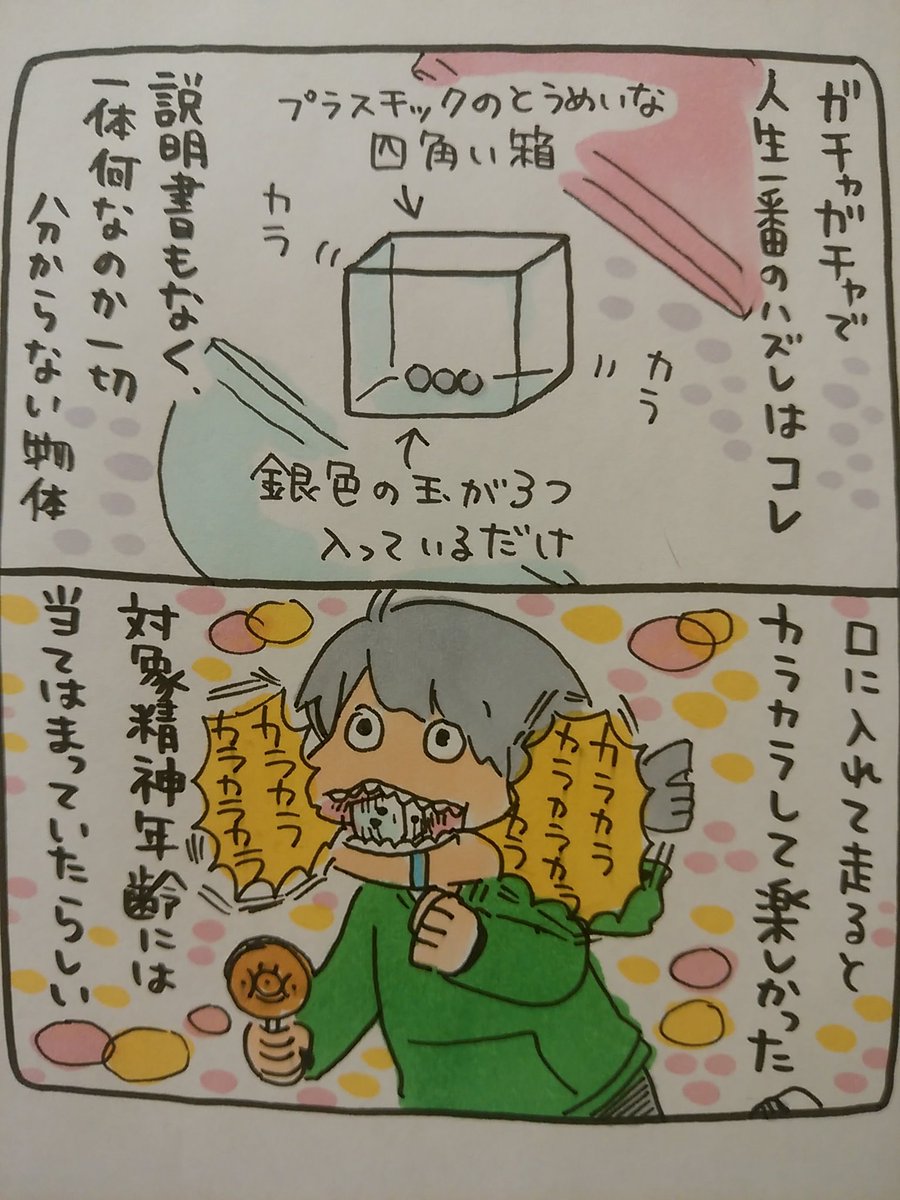 ガチャガチャで
人生一番のハズレはコレ
プラスチックのとうめいな
四角い箱
カラ
カラ
銀色の玉が3つ
入っているだけ
説明書もなく、
一体何なのか一切
分からない物体
口に入れて走ると
カラカラして楽しかった
カラカラ
カラカラカラ
カラ
カラカラ
カラカラカラ
対象精神年齢には
当てはまっていたらしい